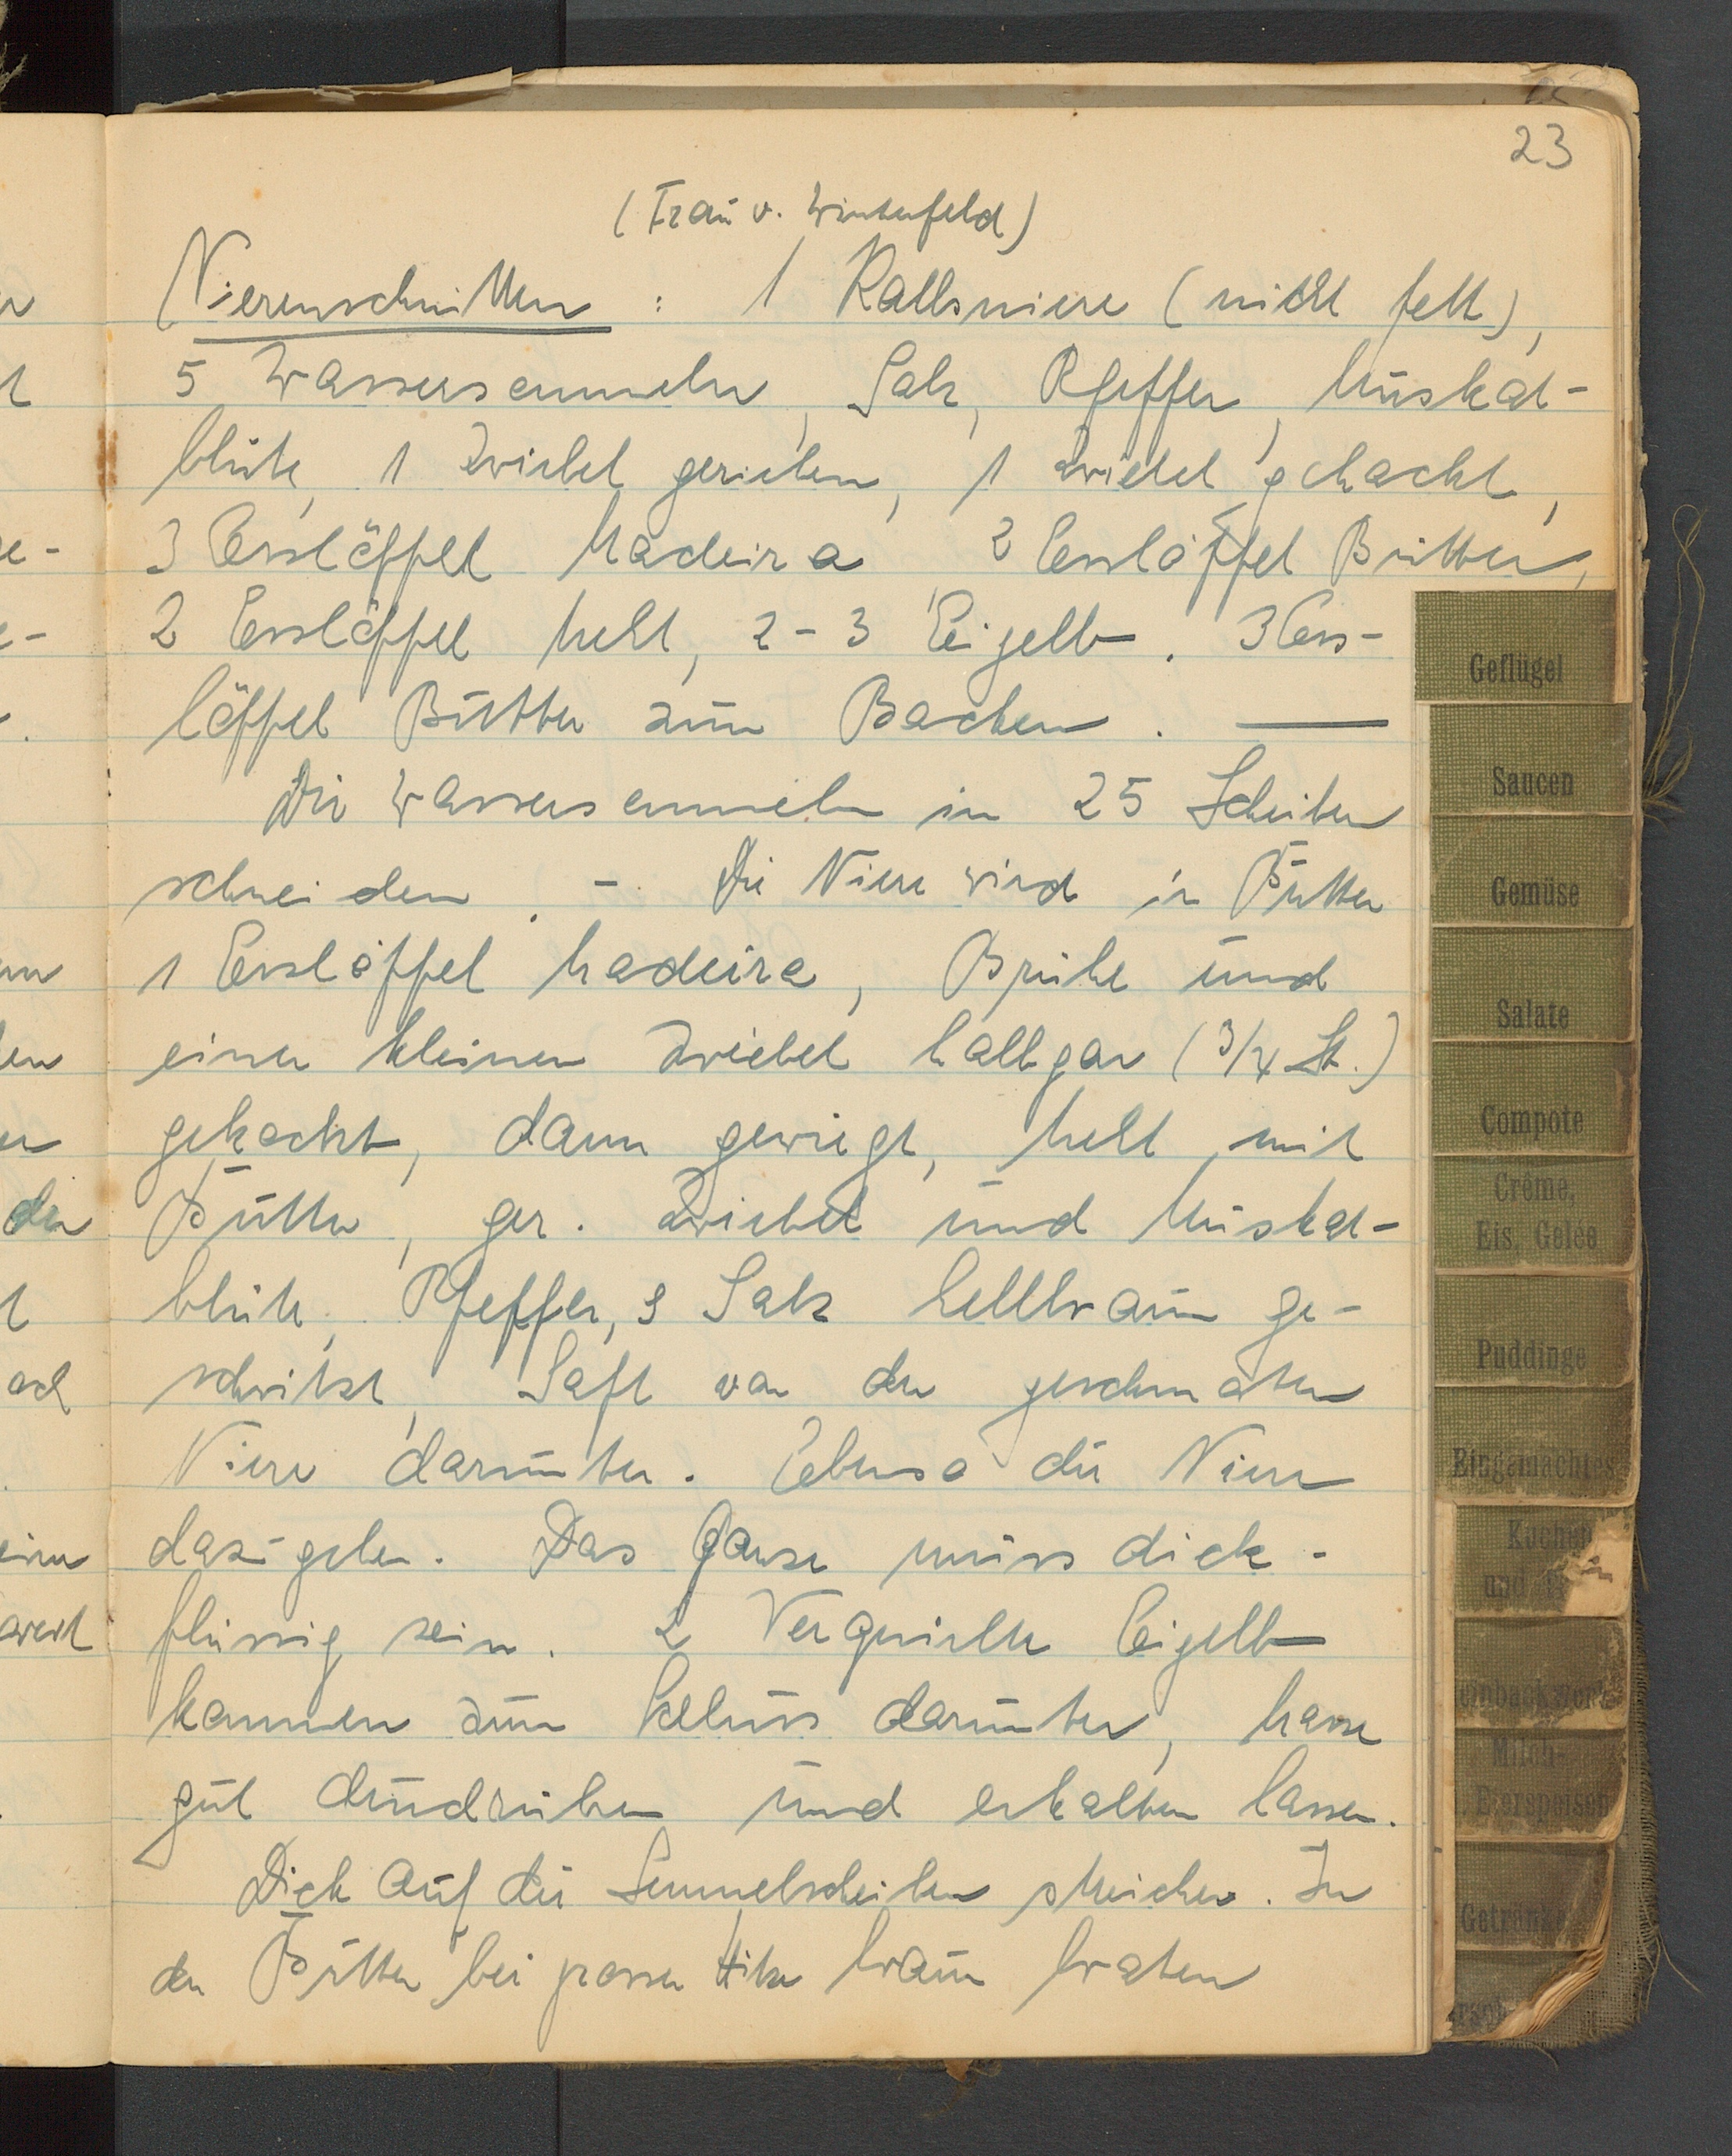 23
(Frau v. Winterfeld)
Nierenschnitten : 1 Kalbsniere (nicht fett),
5 Wassersemmeln, Salz, Pfeffer, Muskat-
blüte, 1 Zwiebel gerieben, 1 Zwiebel gehackt,
3 Esslöffel Madeira, 2 Esslöffel Butter,
2 Esslöffel Mehl, 2-3 Eigelb. 3 Ess-
löffel Butter zum Backen. —
Die Wassersemmeln in 25 Scheiben
schneiden. - Die Niere wird in Butter
1 Esslöffel Madeira, Brühe und
einer kleinen Zwiebel halbgar (3/4 St.)
gekocht, dann gewiegt, Mehl mit
Butter, ger. Zwiebel und Muskat-
blüte, Pfeffer, Salz hellbraun ge-
schwitzt, Saft von der geschmorten
Niere darunter. Ebenso die Niere
dazugeben. Das Ganze muss dick-
flüssig sein. 2 Verquirlte Eigelb
kommen zum Schluss darunter, Masse
gut durchrühren und erkalten lassen.
Dick auf die Semmelscheiben streichen. In
der Butter bei grosser Hitze braun braten
Geflügel
Saucen
Gemüse
Salate
Compote
Crême,
Eis, Gelée
Puddinge
Eingemachtes
Kuchen
und
einbackwerk
Milch-
Eierspeisen
Getränke